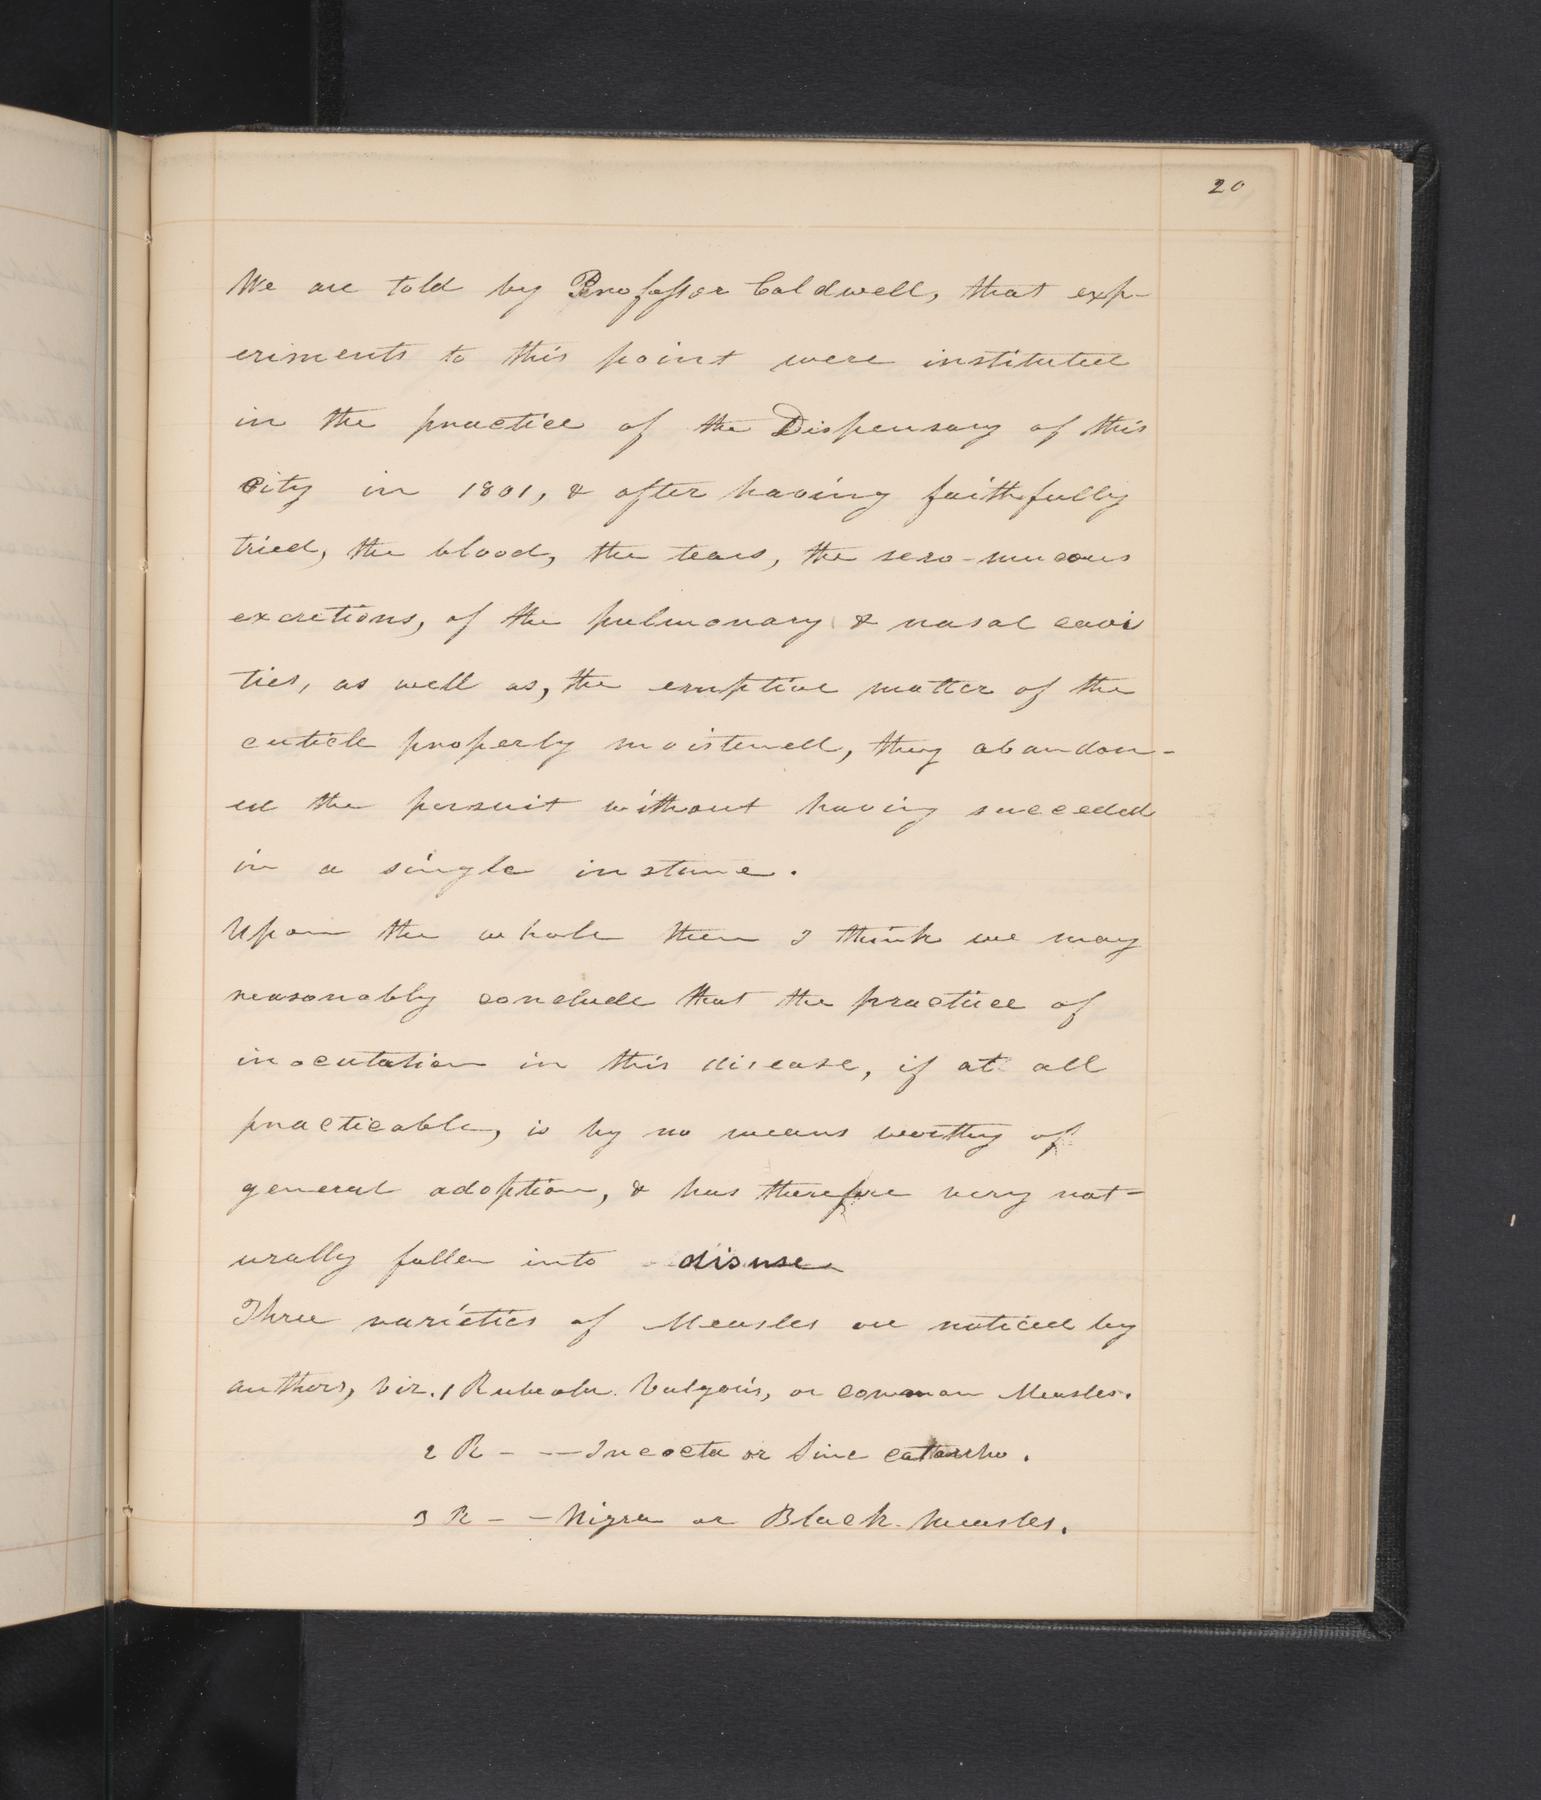 20
We are told by Professor Caldwell, that exp-
eriments to this point were instituted
in the practice of the Dispensary of this
City in 1801, & after having faithfully
tried, the blood, the tears, the sero-mucous
excretions, of the pulmonary & nasal cavi
ties, as well as, the eruptive matter of the
cuticle properly moistened, they abandon-
ed the persuit without having succeded
in a single instance.
Upon the whole then I think we may
reasonably conclude that the practice of
inoculation in this disease, if at all
practicable, is by no means worthy of
general adoption, & has therefore very nat-
urally fallen into disuse
Three varieties of Measles are noticed by
authors, viz. 1 Rubeola Vulgaris, or common Measles.
2 R - -- Incocta or Sine catarrho.
3 R - - Nigra or Black Measles.